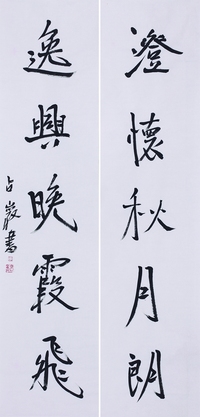 澄懷秋月朗
逸興晚霞飛
占巖書